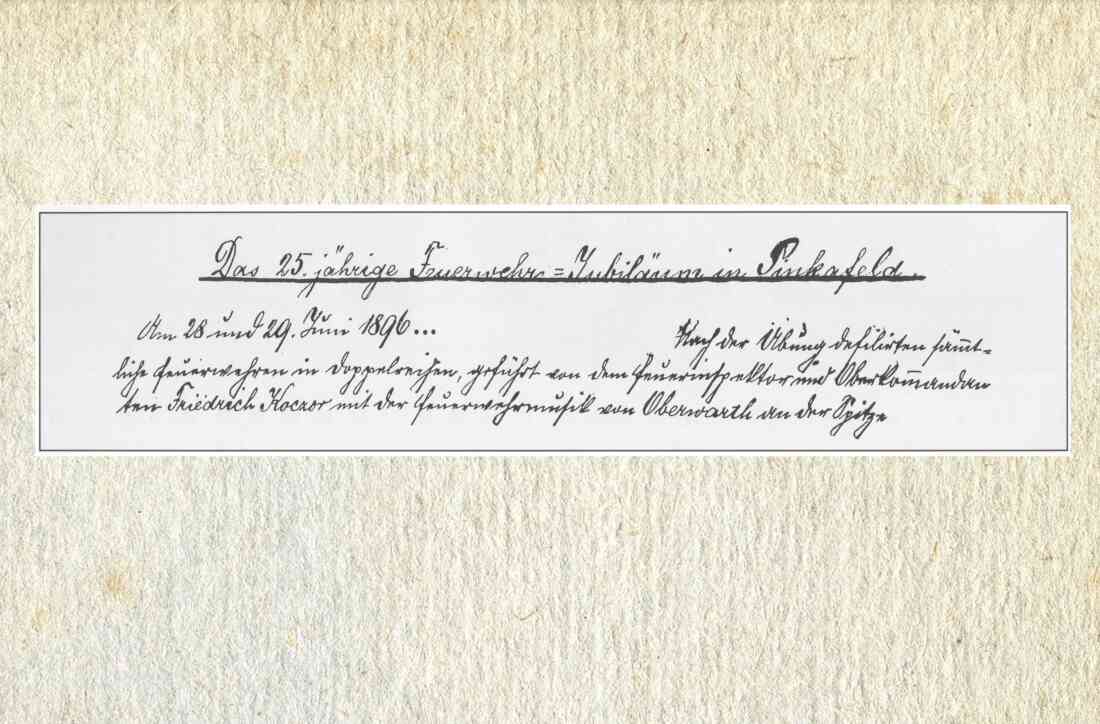 Das 25. jährige Feuerwehr=Jubiläum in Pinkafeld.
Am 28 und 29. Juni 1896...
Nach der Übung defilirten sämt=
liche Feuerwehren in Doppelreihen, geführt von dem Feuerinspektor und Oberkom̄andan
ten Friedrich Koczor mit der Feuerwehrmusik von Oberwarth an der Spitze